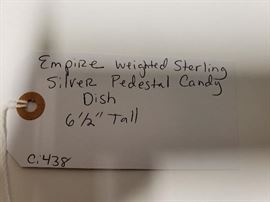 Empire Weighted Sterling
Silver Pedestal Candy
Dish
6½" Tall
C:438